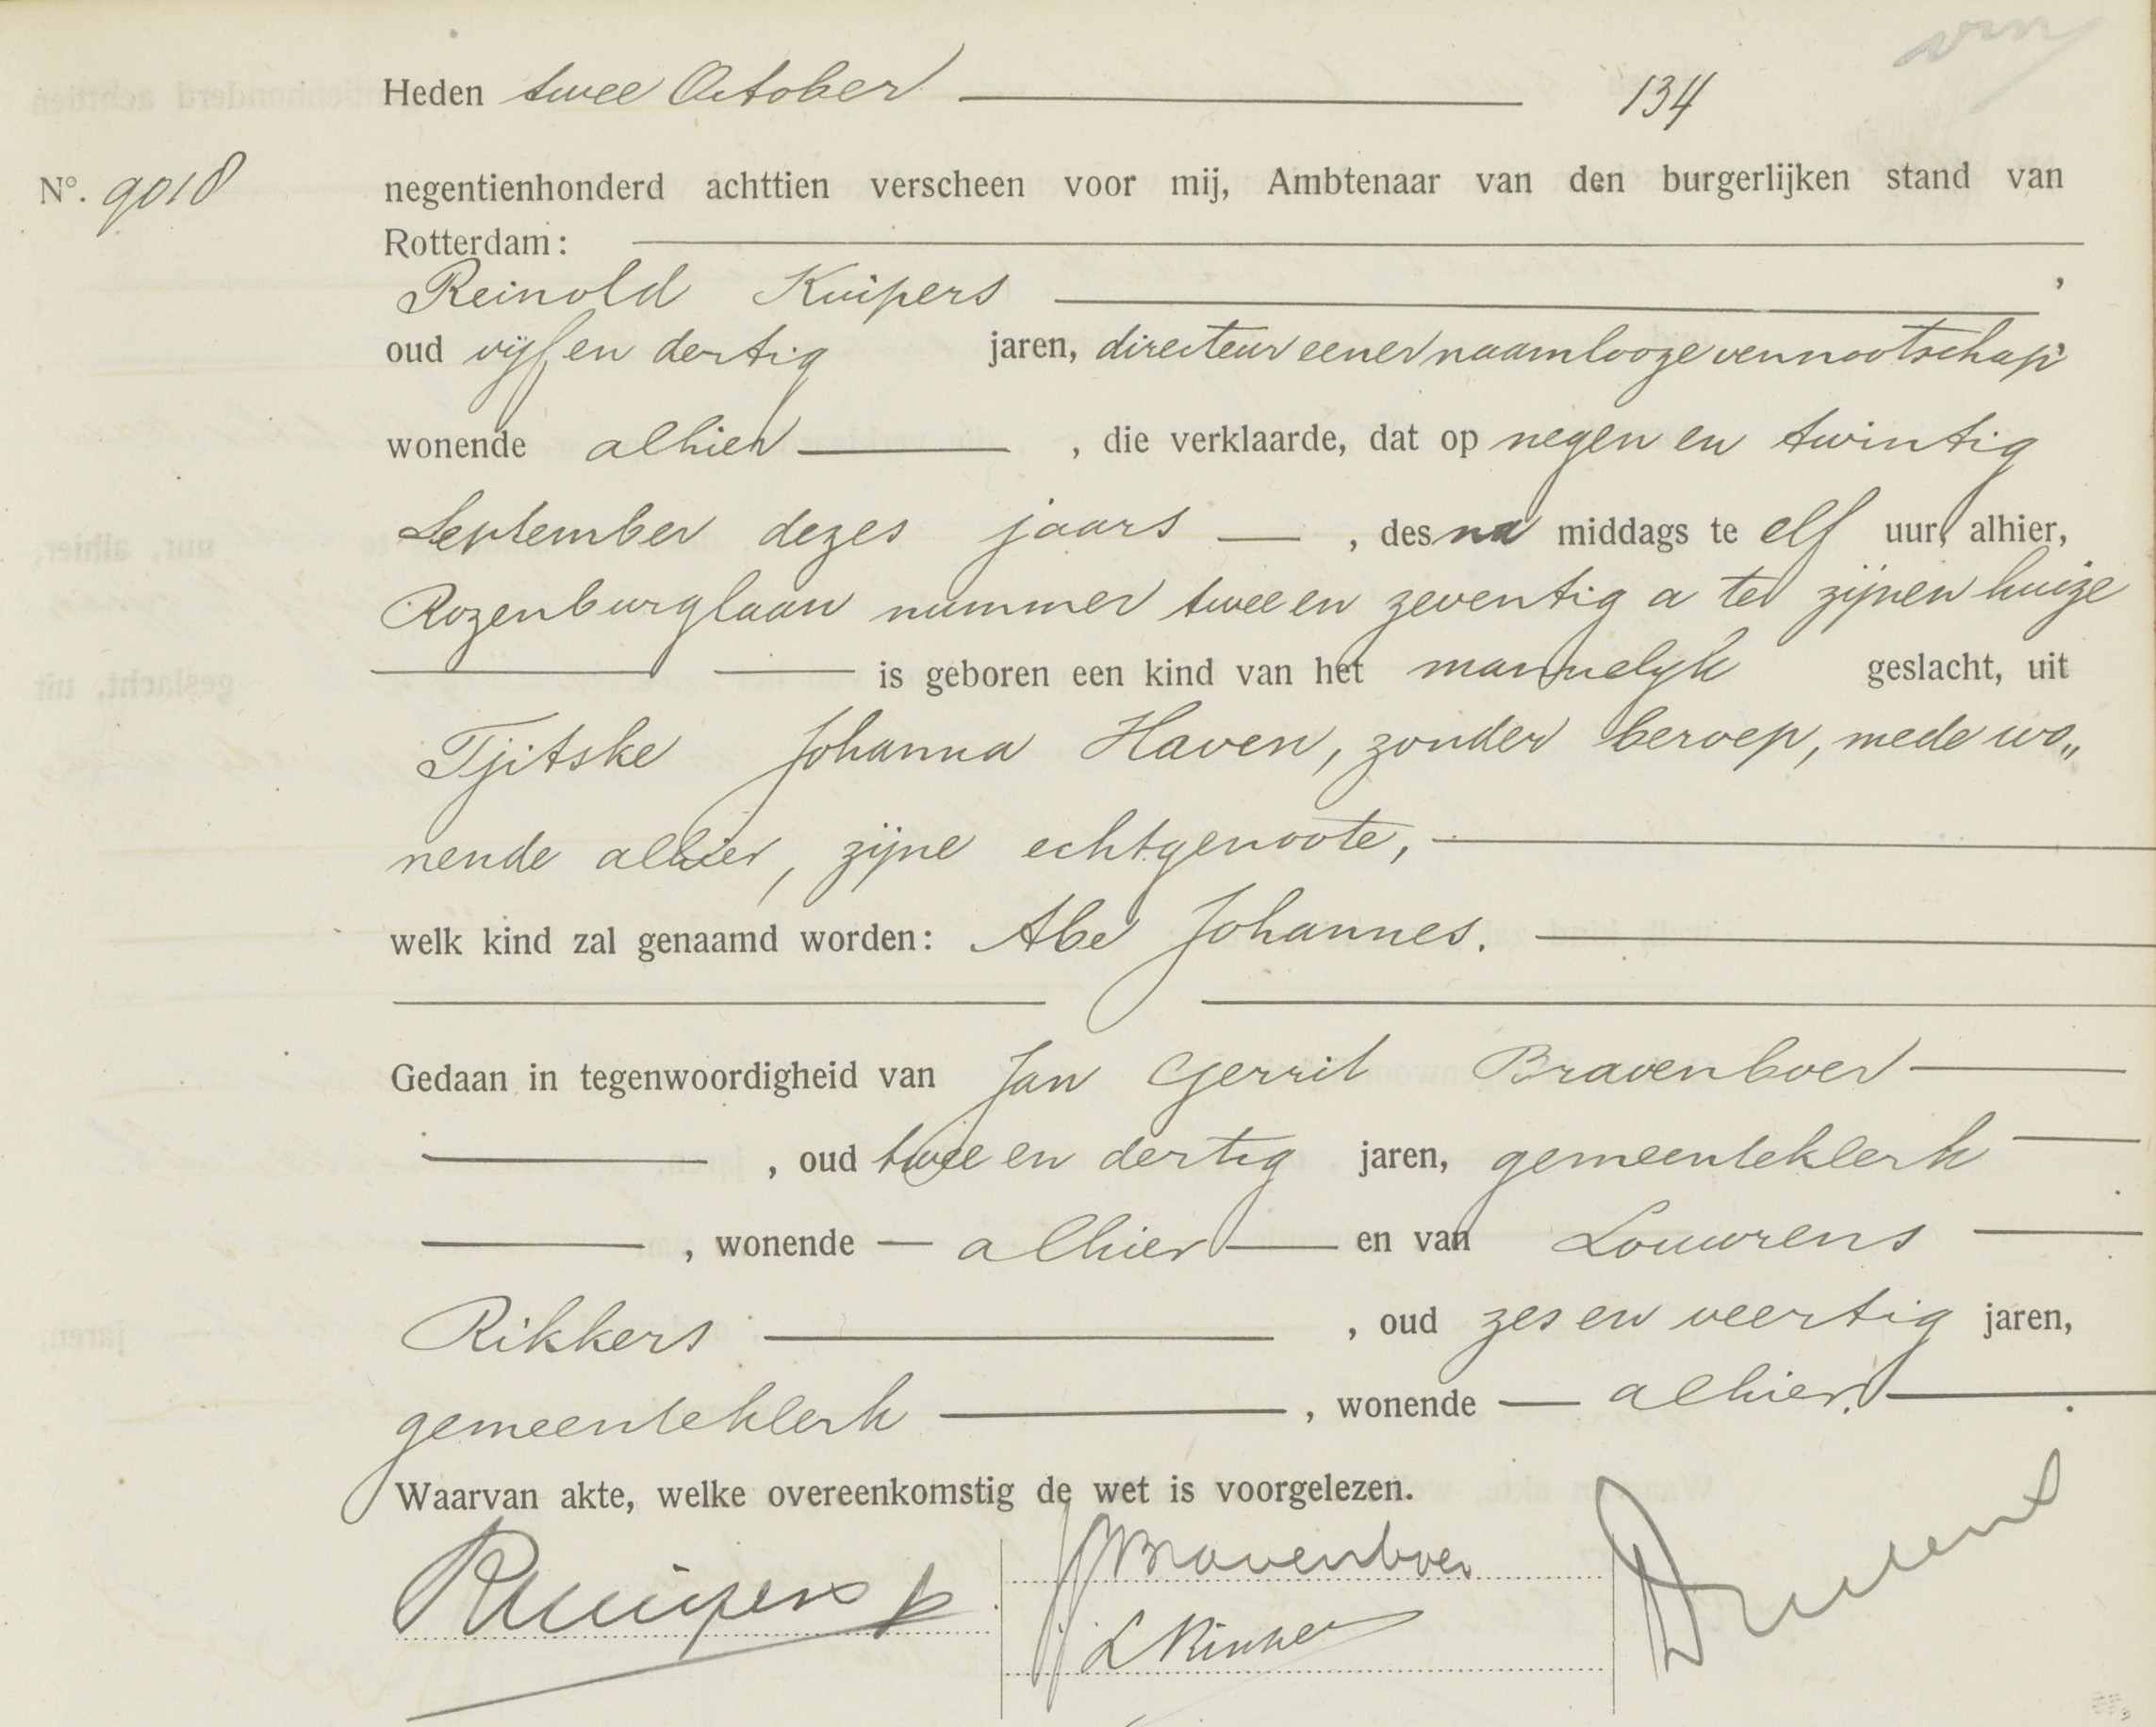 Heden twee October
134
negentienhonderd achttien verscheen voor mij, Ambtenaar van den burgerlijken stand van
N°. 9018
Rotterdam:
Reinold Kuipers ,
oud vijf en dertig jaren, directeur eener naamlooze vennootschap
wonende alhier , die verklaarde, dat op negen en twintig
September dezes jaars , des na middags te elf uur, alhier,
Rozenburglaan nummer twee en zeventig a ter zijnen huize
is geboren een kind van het mannelijk geslacht, uit
Tjitske Johanna Haven, zonder beroep, mede wo„
nende alhier, zijne echtgenoote,
welk kind zal genaamd worden: Abe Johannes.
Gedaan in tegenwoordigheid van Jan Gerrit Bravenboer
, oud twee en dertig jaren, gemeenteklerk
, wonende alhier en van Louwrens
Rikkers , oud zes en veertig jaren,
gemeenteklerk , wonende alhier.
Waarvan akte, welke overeenkomstig de wet is voorgelezen.
RKuipers
JGBravenboer
L Rikkers